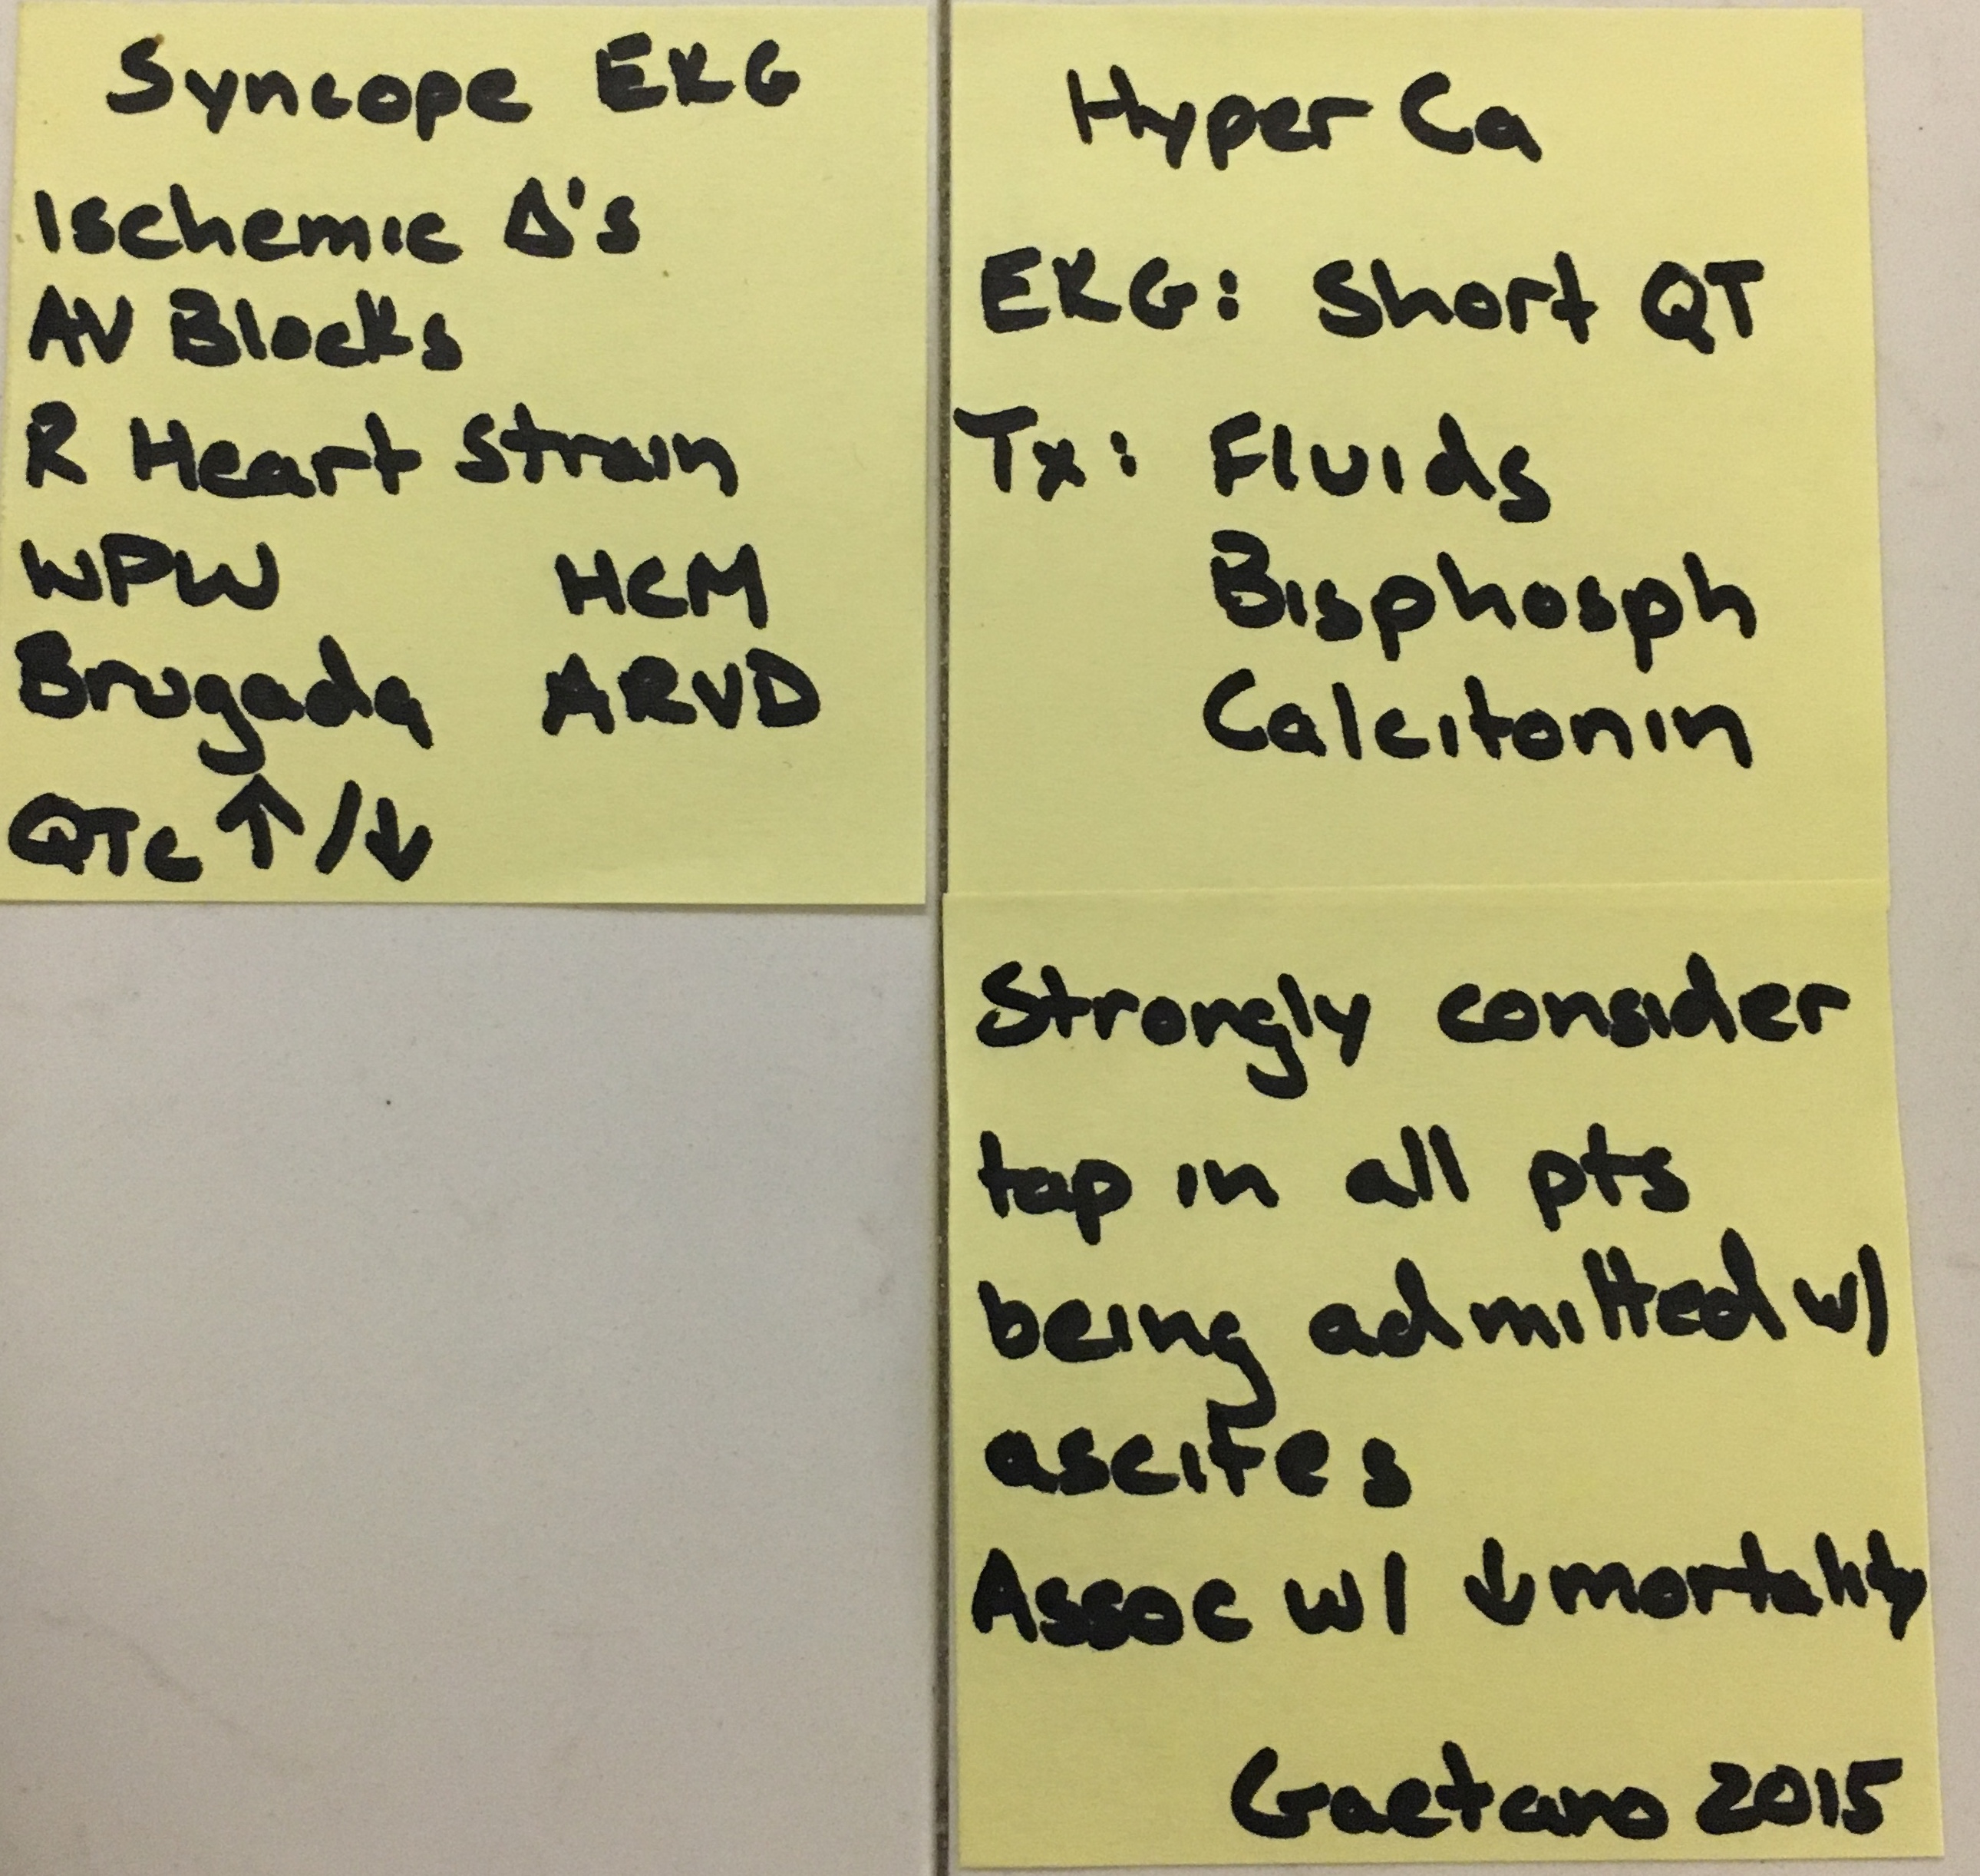 Syncope EKG
Ischemic Δ's
AV Blocks
R Heart Strain
WPW HCM
Brugada ARVD
QTc ↑/↓
Hyper Ca
EKG: Short QT
Tx: Fluids
Bisphosph
Calcitonin
Strongly consider
tap in all pts
being admitted w/
ascites
Assoc w/ ↓mortality
Gaetano 2015